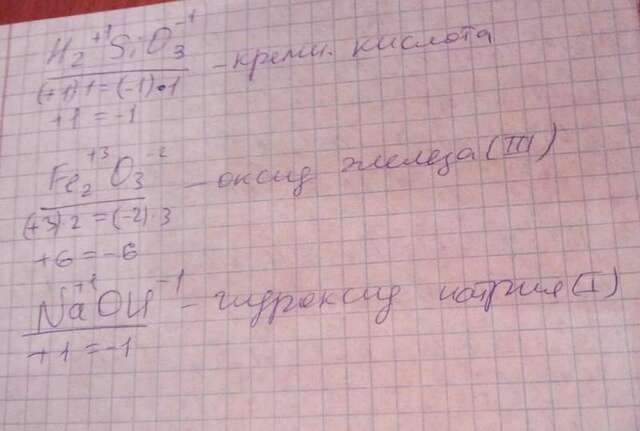 H₂⁺¹SiO₃⁻¹ - кремн. кислота
(+1)·1=(-1)·1
+1=-1
Fe₂⁺³O₃⁻² - оксид железа (III)
(+3)·2=(-2)·3
+6=-6
Na⁺¹OH⁻¹ - гидроксид натрия (I)
+1=-1